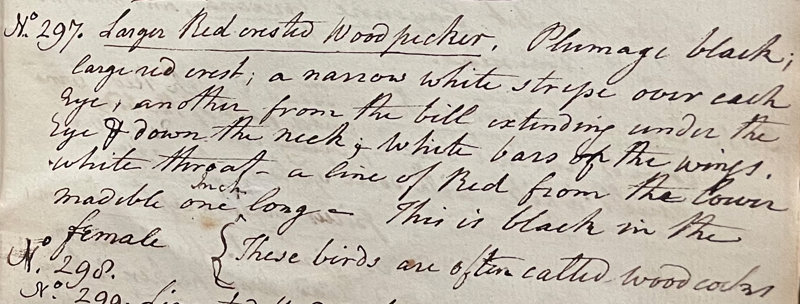 No. 297. Larger Red-crested Woodpecker. Plumage black;
large red crest; a narrow white stripe over each
Eye, another from the bill extending under the
Eye & down the neck; White bars on the wings.
White throat - a line of Red from the lower
madible one inch long - This is black in the
female {These birds are often called woodcocks
No. 298.
No. 299.